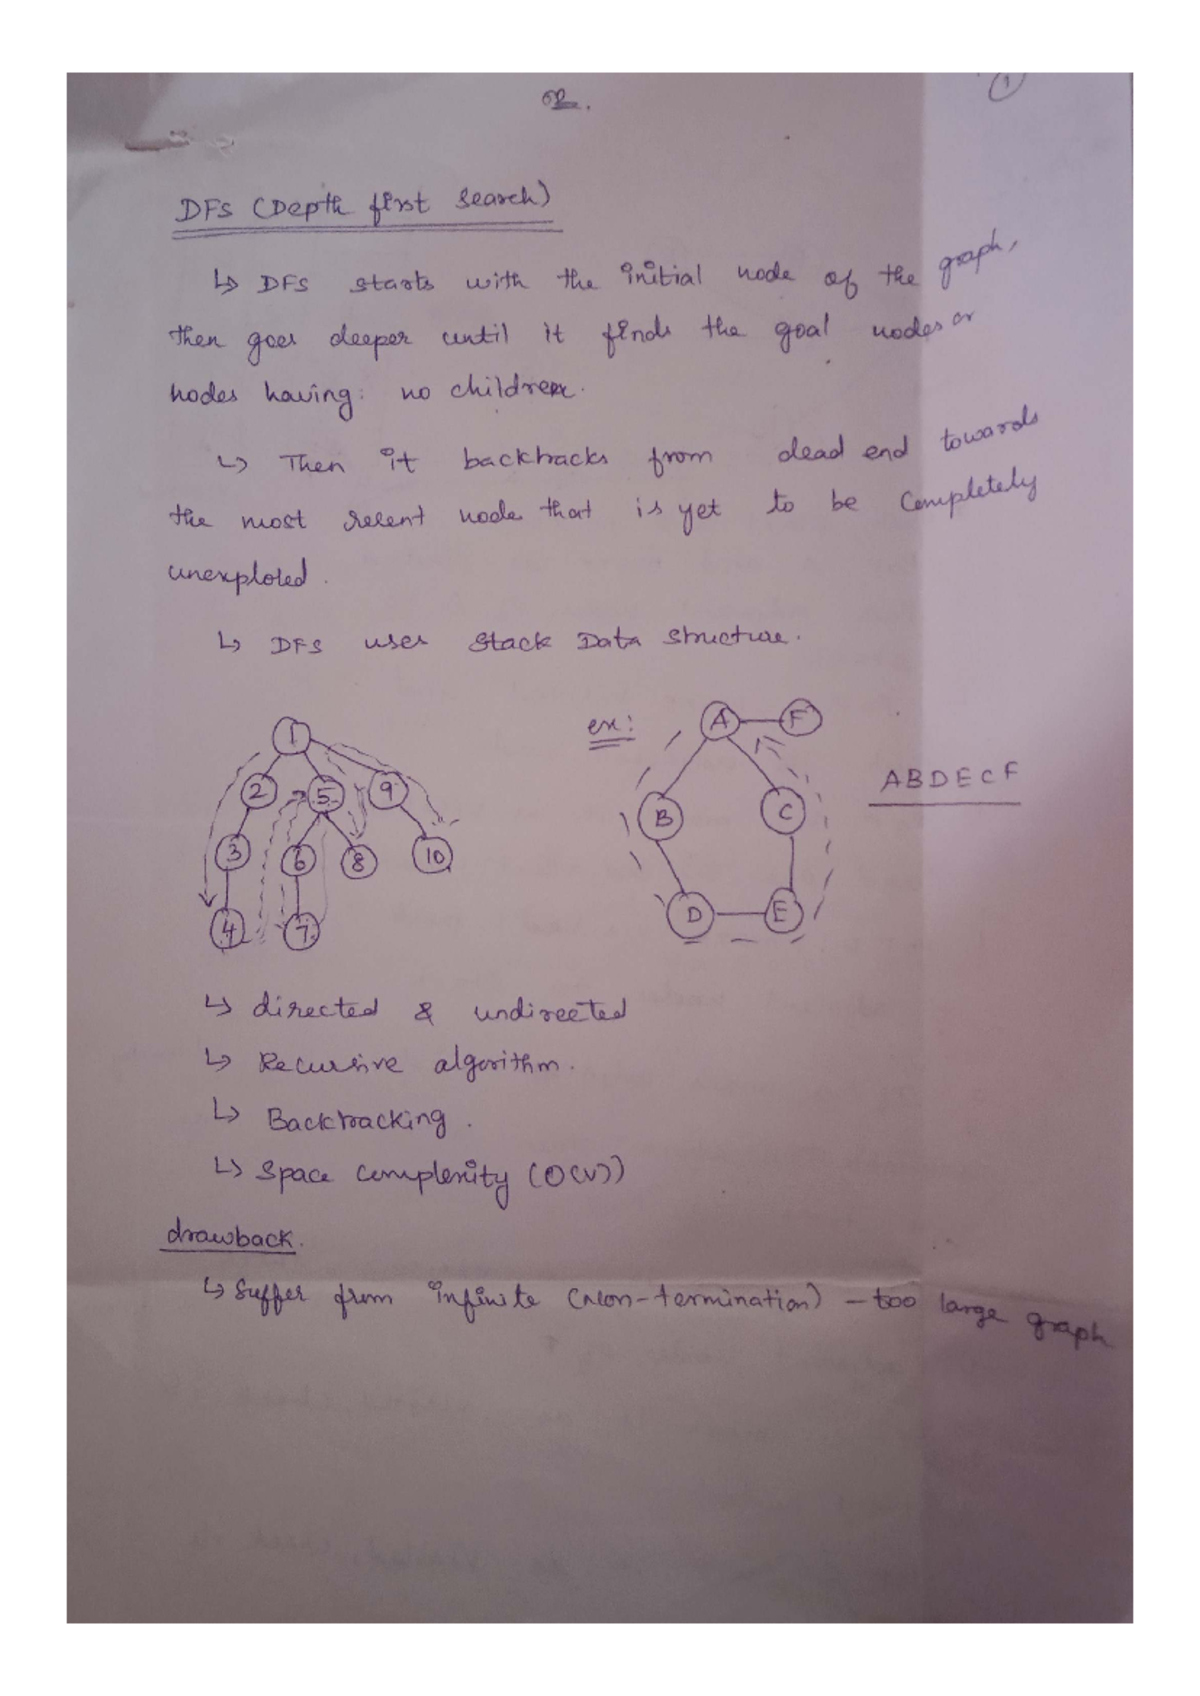 1
DFS (Depth first search)
↳ DFS starts with the initial node of the graph,
then goes deeper until it finds the goal nodes or
nodes having no children.
↳ Then it backtracks from dead end towards
the most recent node that is yet to be completely
unexplored.
↳ DFS uses stack Data structure.
1
2 5 9
3 6 8 10
4 7
ex:
A F
B C
D E
ABDECF
↳ directed & undirected
↳ Recursive algorithm.
↳ Backtracking.
↳ Space complexity (O(V))
drawback.
↳ Suffer from infinite (Non-termination) - too large graph